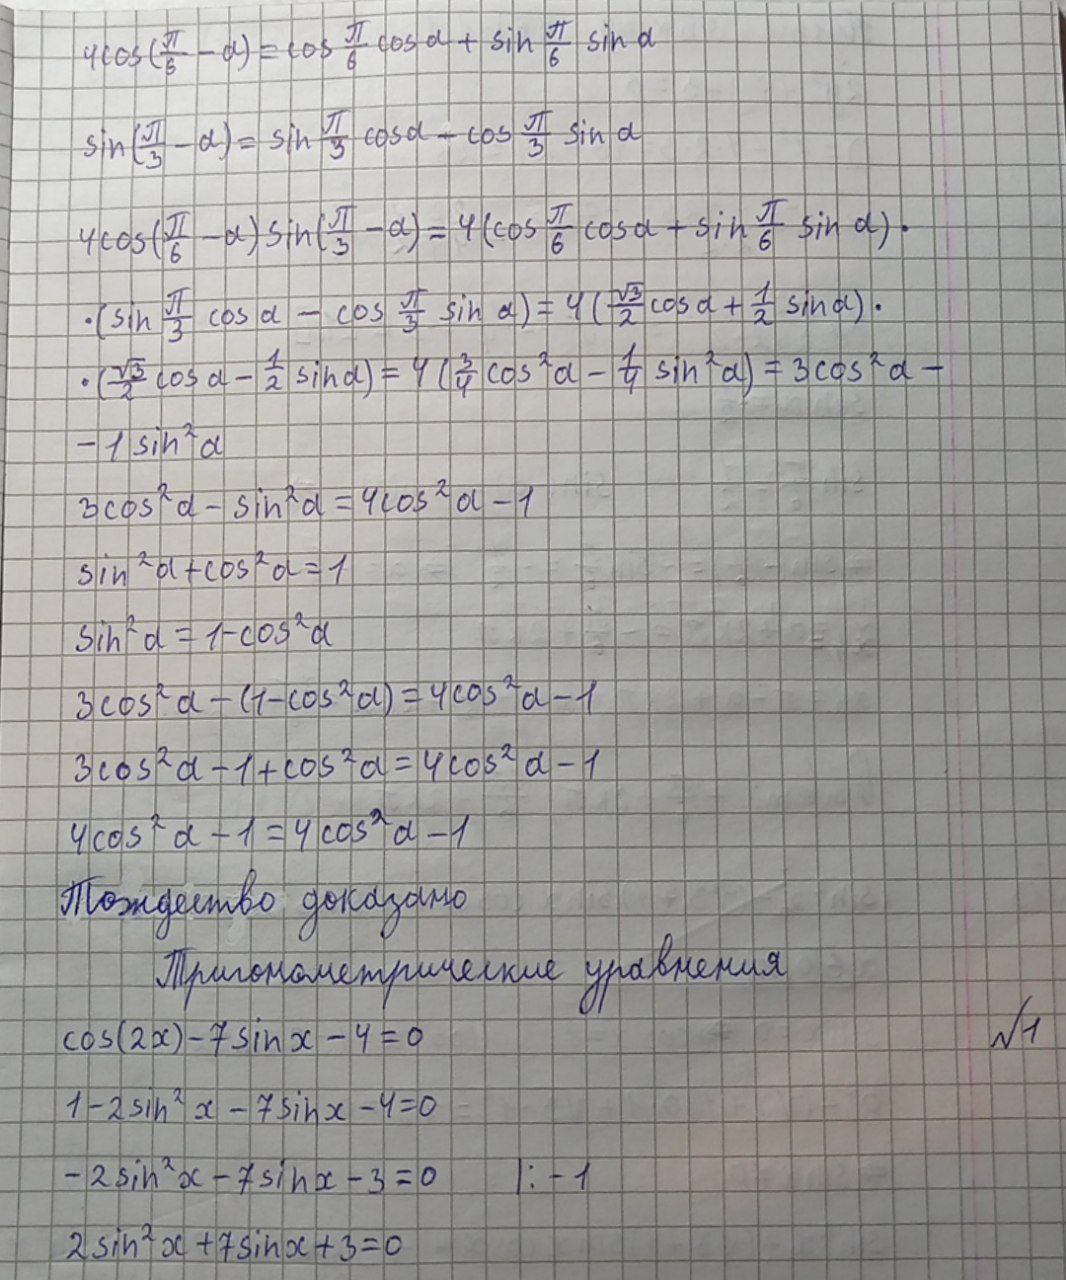 4cos(π/6 - α) = cos π/6 cos α + sin π/6 sin α
sin(π/3 - α) = sin π/3 cos α - cos π/3 sin α
4cos(π/6 - α) sin(π/3 - α) = 4(cos π/6 cos α + sin π/6 sin α) ·
· (sin π/3 cos α - cos π/3 sin α) = 4(√3/2 cos α + 1/2 sin α) ·
· (√3/2 cos α - 1/2 sin α) = 4(3/4 cos²α - 1/4 sin²α) = 3cos²α -
- 1 sin²α
3cos²α - sin²α = 4cos²α - 1
sin²α + cos²α = 1
sin²α = 1 - cos²α
3cos²α - (1 - cos²α) = 4cos²α - 1
3cos²α - 1 + cos²α = 4cos²α - 1
4cos²α - 1 = 4cos²α - 1
Тождество доказано
Тригонометрические уравнения
cos(2x) - 7sin x - 4 = 0 √1
1 - 2sin²x - 7sin x - 4 = 0
-2sin²x - 7sin x - 3 = 0 |: -1
2sin²x + 7sin x + 3 = 0